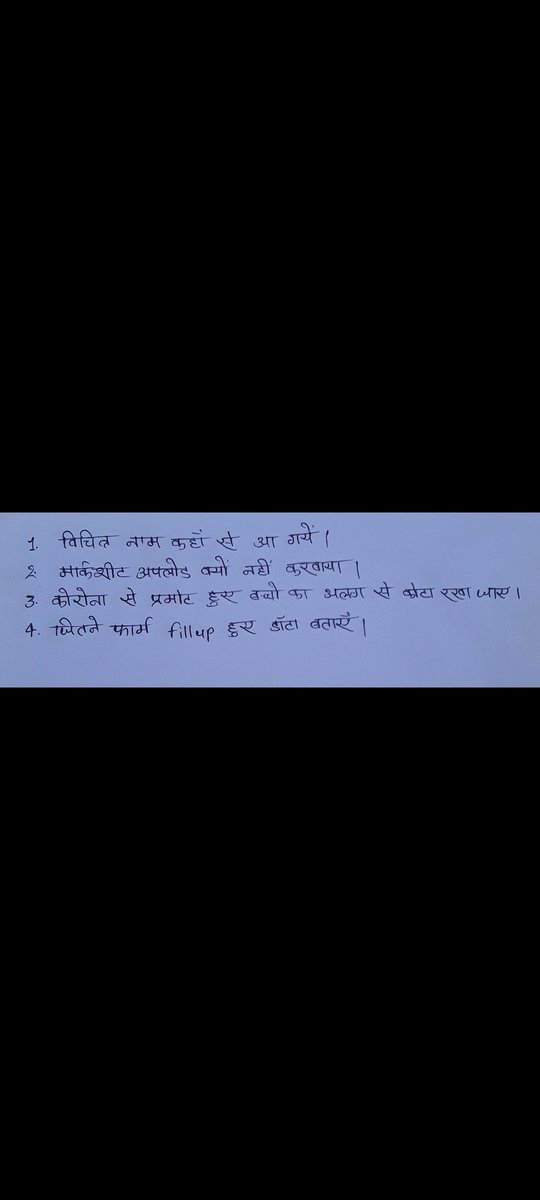 1. विचित्र नाम कहाँ से आ गयें |
2. मार्कशीट अपलोड क्यों नहीं करवाया |
3. कोरोना से प्रमोट हुए बचो का अलग से कोटा रखा जाए |
4. जितने फार्म fillup हुए डॉटा बताएँ |